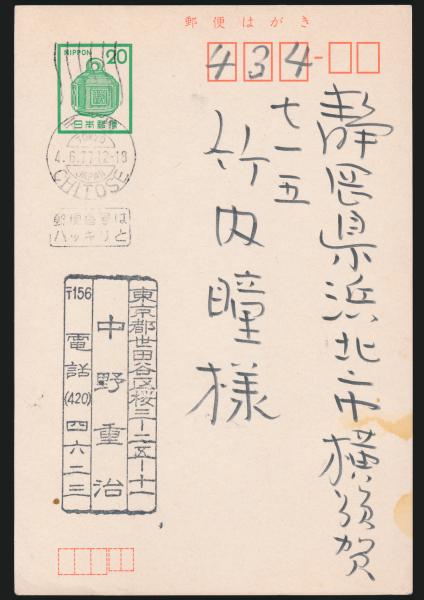 郵便はがき
NIPPON 20
日本郵便
434
TOKYO
4.6.77.12-18
JAPAN
CHITOSE
郵便番号は
ハッキリと
静岡県浜北市横須賀
七一五
竹内瞳様
東京都世田谷区桜三-二五-十一
中野重治
〒156 電話(420)四六二三